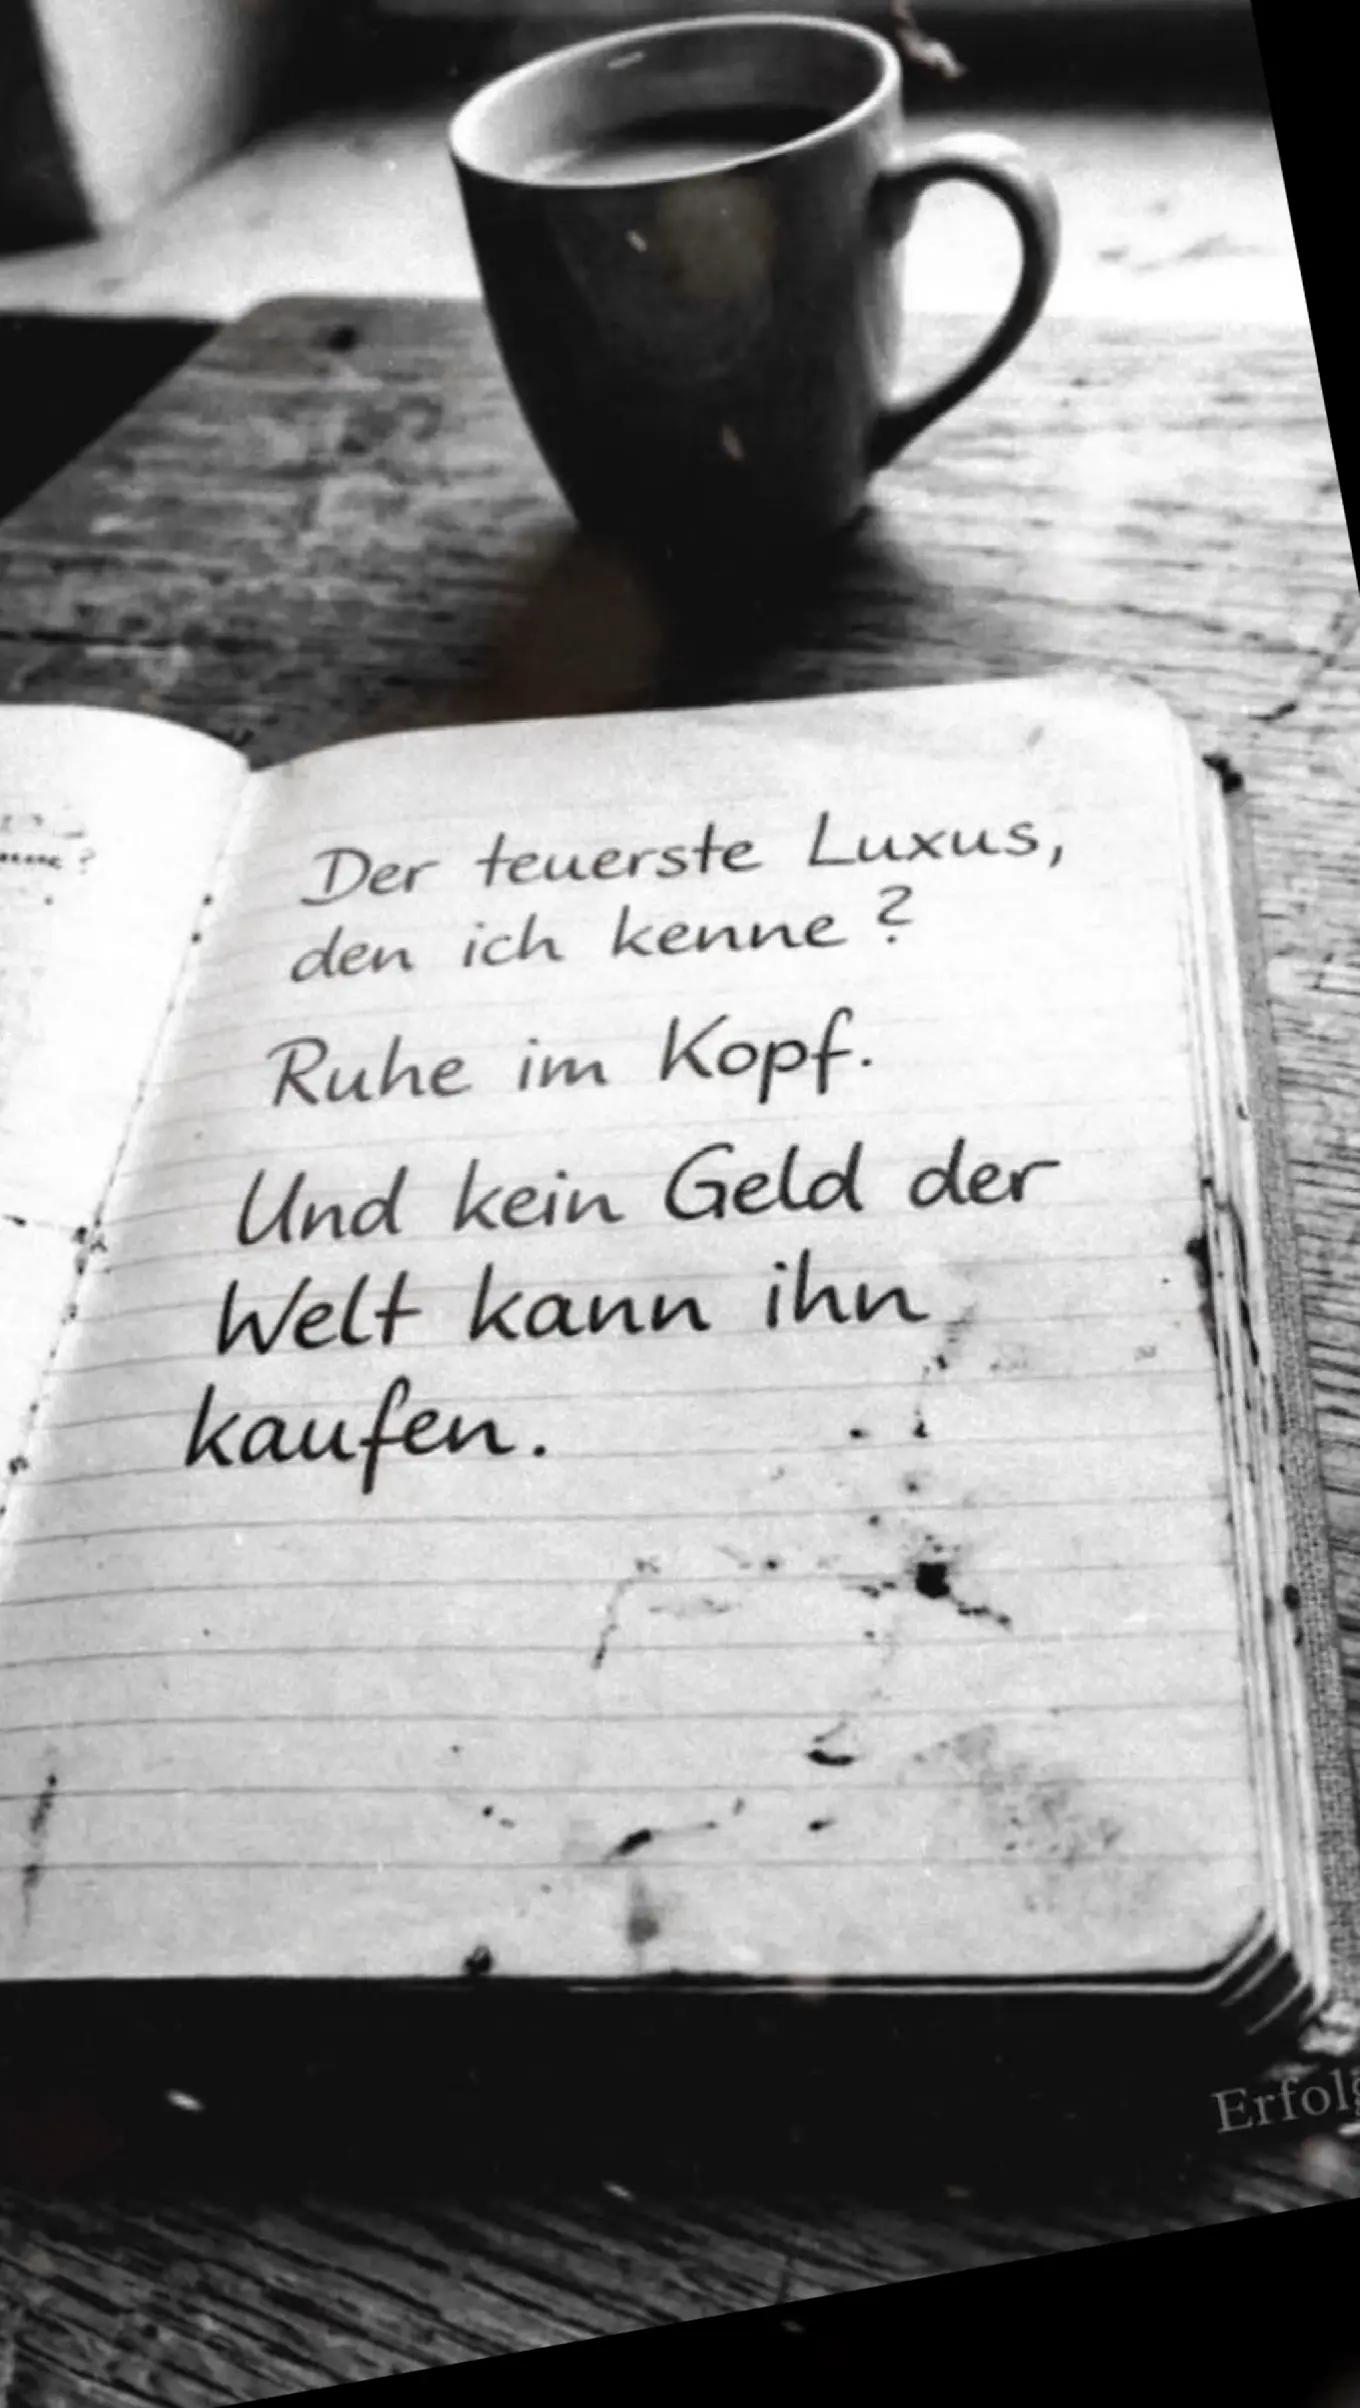 Der teuerste Luxus,
den ich kenne?
Ruhe im Kopf.
Und kein Geld der
Welt kann ihn
kaufen.
Erfolg